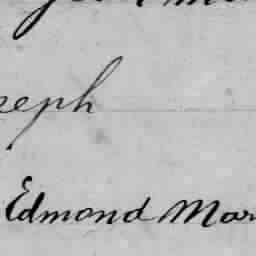 seph
Edmond Mar